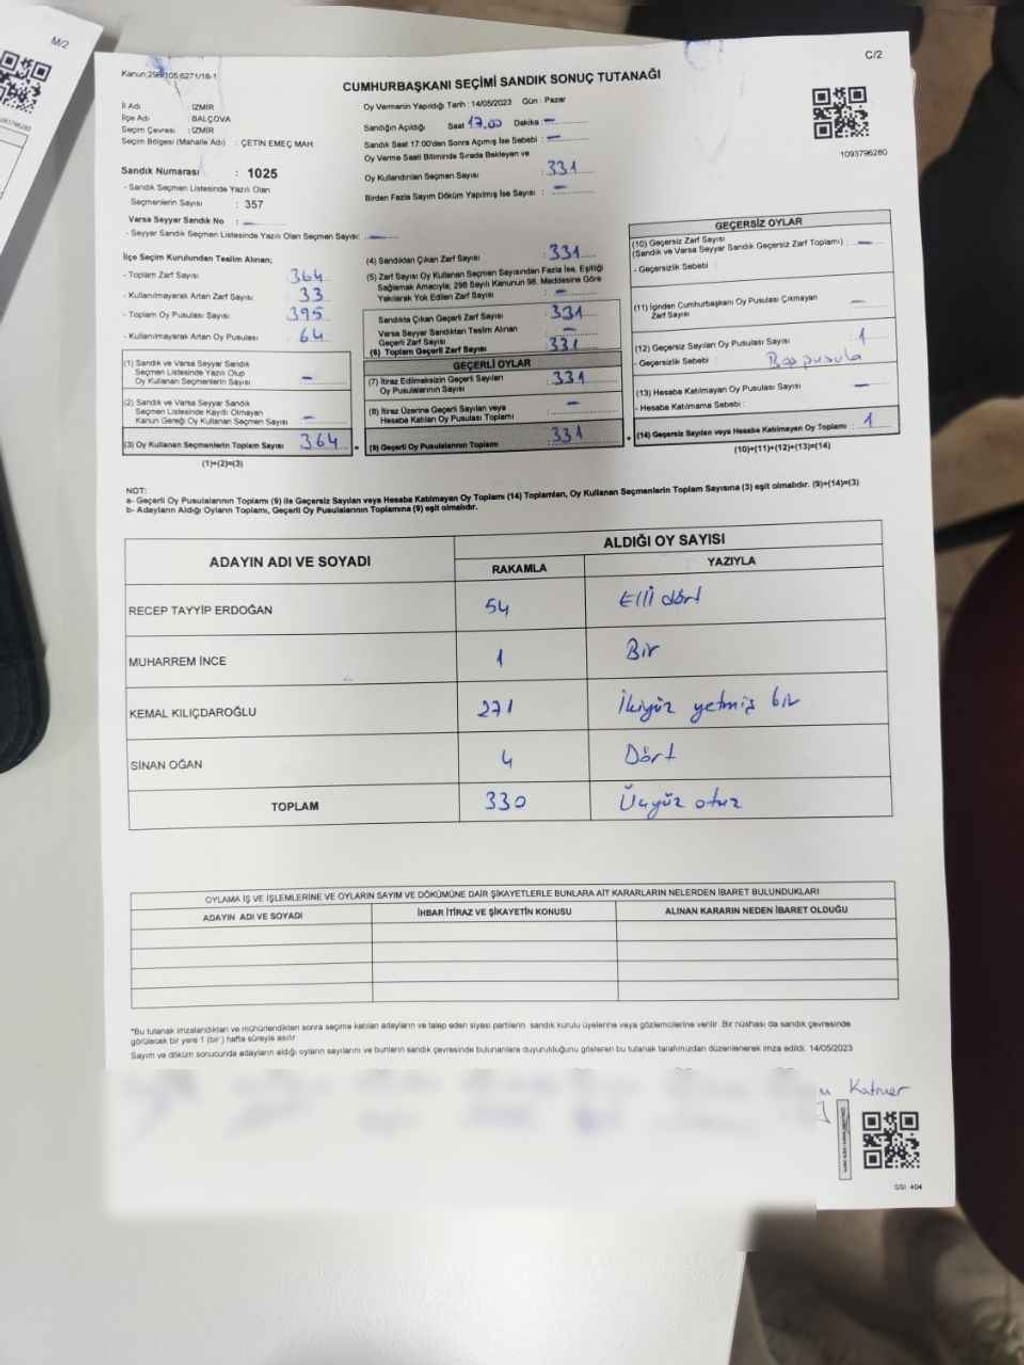 M/2
C/2
CUMHURBAŞKANI SEÇİMİ SANDIK SONUÇ TUTANAĞI
İl Adı : İZMİR
İlçe Adı : BALÇOVA
Seçim Çevresi : İZMİR
Seçim Bölgesi (Mahalle Adı) : ÇETİN EMEÇ MAH
Sandık Numarası : 1025
- Sandık Seçmen Listesinde Yazılı Olan
Seçmenlerin Sayısı : 357
Varsa Seyyar Sandık No : —
- Seyyar Sandık Seçmen Listesinde Yazılı Olan Seçmen Sayısı: —
Oy Vermenin Yapıldığı Tarih : 14/05/2023 Gün : Pazar
Sandığın Açıldığı Saat 17.00 Dakika : —
Sandık Saat 17:00'den Sonra Açılmış İse Sebebi : —
Oy Verme Saati Bitiminde Sırada Bekleyen ve
Oy Kullandırılan Seçmen Sayısı : 331
Birden Fazla Sayım Döküm Yapılmış İse Sayısı : —
1093796260
İlçe Seçim Kurulundan Teslim Alınan;
- Toplam Zarf Sayısı 364
- Kullanılmayarak Artan Zarf Sayısı : 33
- Toplam Oy Pusulası Sayısı : 395
- Kullanılmayarak Artan Oy Pusulası : 64
(1) Sandık ve Varsa Seyyar Sandık
Seçmen Listesinde Yazılı Olup
Oy Kullanan Seçmenlerin Sayısı : —
(2) Sandık ve Varsa Seyyar Sandık
Seçmen Listesinde Kaydı Olmayan
Kanun Gereği Oy Kullanan Seçmen Sayısı : —
(3) Oy Kullanan Seçmenlerin Toplam Sayısı : 364
(1)+(2)=(3)
(4) Sandıktan Çıkan Zarf Sayısı : 331
(5) Zarf Sayısı Oy Kullanan Seçmen Sayısından Fazla İse, Eşitliği
Sağlamak Amacıyla; 298 Sayılı Kanunun 98. Maddesine Göre
Yakılarak Yok Edilen Zarf Sayısı : —
Sandıkta Çıkan Geçerli Zarf Sayısı : 331
Varsa Seyyar Sandıktan Teslim Alınan
Geçerli Zarf Sayısı : —
(6) Toplam Geçerli Zarf Sayısı : 331
GEÇERLİ OYLAR
(7) İtiraz Edilmeksizin Geçerli Sayılan
Oy Pusulasının Sayısı : 331
(8) İtiraz Üzerine Geçerli Sayılan veya
Hesaba Katılan Oy Pusulası Toplamı : —
(9) Geçerli Oy Pusulalarının Toplamı : 331
GEÇERSİZ OYLAR
(10) Geçersiz Zarf Sayısı
(Sandık ve Varsa Seyyar Sandık Geçersiz Zarf Toplamı) : —
- Geçersizlik Sebebi :
(11) İçinden Cumhurbaşkanı Oy Pusulası Çıkmayan
Zarf Sayısı : —
(12) Geçersiz Sayılan Oy Pusulası Sayısı : 1
- Geçersizlik Sebebi : Boş pusula
(13) Hesaba Katılmayan Oy Pusulası Sayısı : —
- Hesaba Katılmama Sebebi :
(14) Geçersiz Sayılan veya Hesaba Katılmayan Oy Toplamı : 1
(10)+(11)+(12)+(13)=(14)
NOT:
a- Geçerli Oy Pusulalarının Toplamı (9) ile Geçersiz Sayılan veya Hesaba Katılmayan Oy Toplamı (14) Toplamları, Oy Kullanan Seçmenlerin Toplam Sayısına (3) eşit olmalıdır. (9)+(14)=(3)
b- Adayların Aldığı Oyların Toplamı, Geçerli Oy Pusulalarının Toplamına (9) eşit olmalıdır.
ADAYIN ADI VE SOYADI ALDIĞI OY SAYISI
RAKAMLA YAZIYLA
RECEP TAYYİP ERDOĞAN 54 Elli dört
MUHARREM İNCE 1 Bir
KEMAL KILIÇDAROĞLU 271 İkiyüz yetmiş bir
SİNAN OĞAN 4 Dört
TOPLAM 330 Üçyüz otuz
OYLAMA İŞ VE İŞLEMLERİNE VE OYLARIN SAYIM VE DÖKÜMÜNE DAİR ŞİKAYETLERLE BUNLARA AİT KARARLARIN NELERDEN İBARET BULUNDUKLARI
ADAYIN ADI VE SOYADI İHBAR İTİRAZ VE ŞİKAYETİN KONUSU ALINAN KARARIN NEDEN İBARET OLDUĞU
*Bu tutanak imzalandıktan ve mühürlendikten sonra seçime katılan adayların ve talep eden siyasi partilerin sandık kurulu üyelerine veya gözlemcilerine verilir. Bir nüshası da sandık çevresinde
görülecek bir yere 1 (bir) hafta süreyle asılır
Sayım ve döküm sonucunda adayların aldığı oyların sayılarını ve bunların sandık çevresinde bulunanlara duyurulduğunu gösteren bu tutanak tarafımızdan düzenlenerek imza edildi. 14/05/2023
Katmer